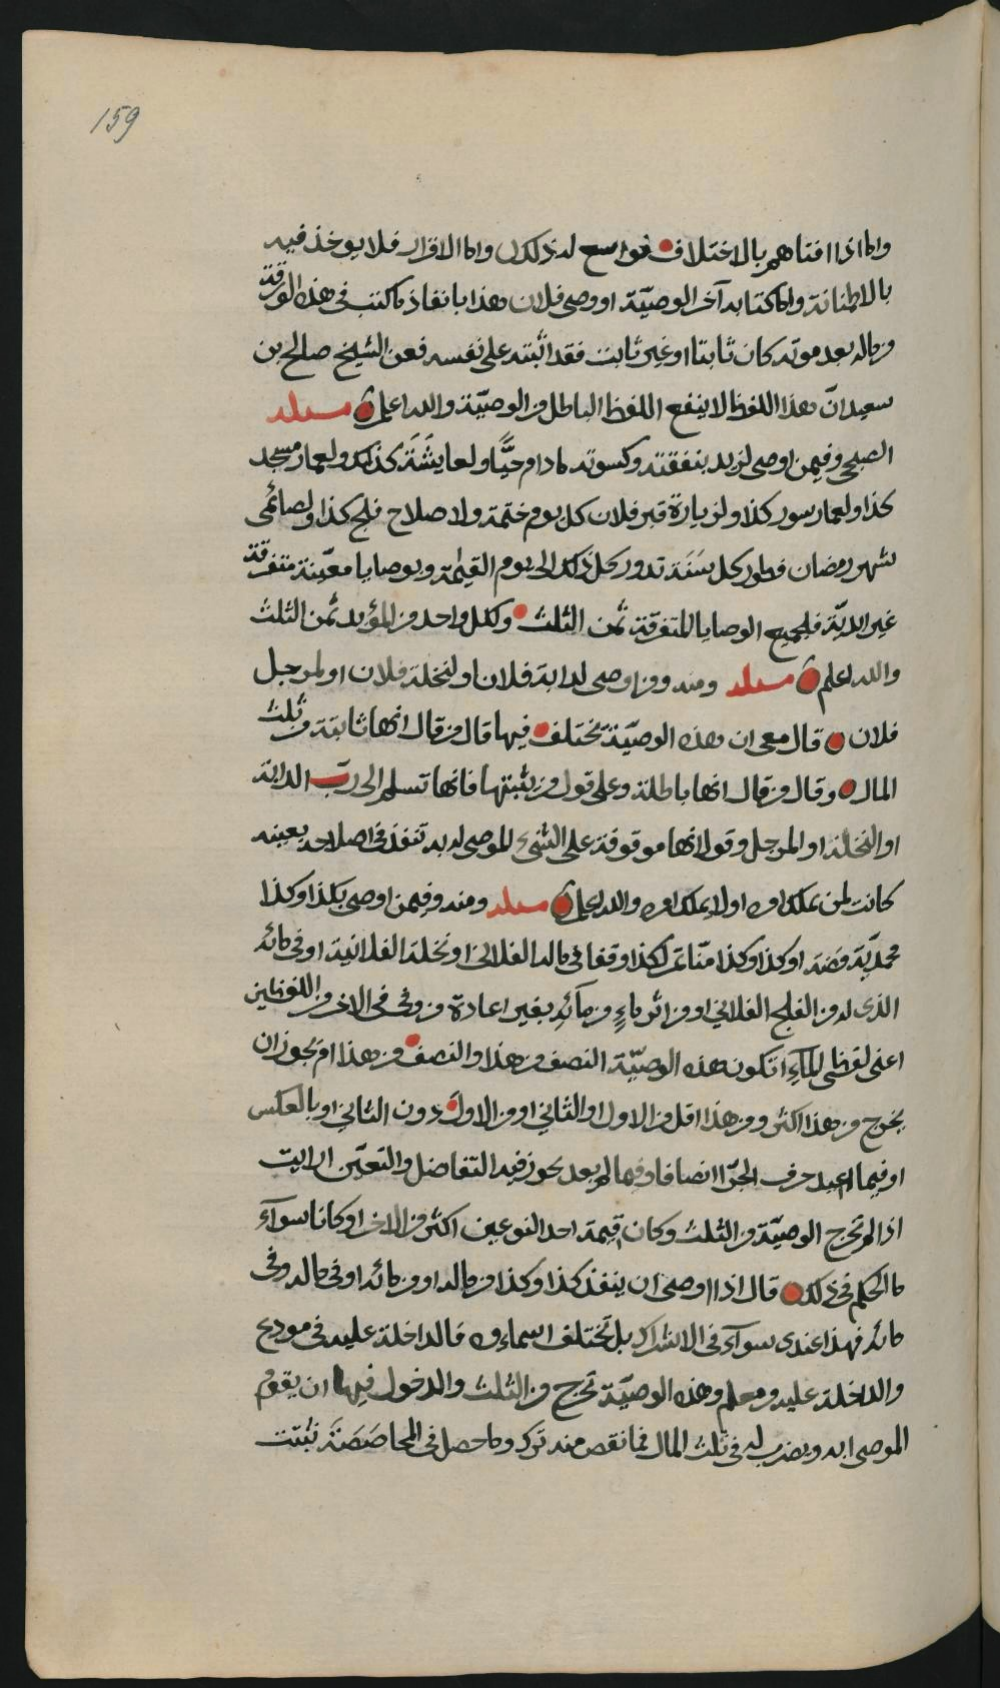 159
واما اذا افتاهم بالاختلاف فواسع له ذلك واما الاقرار فلا يوخذ فيه
بالاطمنانة واما كتابه آخر الوصيّة اووصى فلان هذا بانفاذ ما كتب فى هذه الورقة
من ماله بعد موته كان ثابتا او غير ثابت فقد اثبته على نفسه فعن الشيخ صالح بن
سعيد انّ هذا اللفظ لا ينفع اللفظ الباطل من الوصيّة والله اعلم مسئلة
الصبحى وفيمن اوصى لزيد بنفقته وكسوته مادام حيًّا ولعايشَة كذلك ولعمار مسجد
كذا ولعمار سور كذا ولزيارة قبر فلان كل يوم ختمة ولاصلاح فلج كذا ولصائمى
شهر رمضان فطور كل سَنَة تدور كل ذلك الى يوم القيٰمة وبوصايا معيّنة متفرقة
غير ابديّة فلجميع الوصايا المتفرقة ثمن الثلث ولكل واحد من المؤبد ثمن الثلث
والله اعلم مسئلة ومنه ومن اوصى لدابة فلان او لنخلة فلان او لمرجل
فلان قال معى ان هذه الوصيّة مختلف فيها قال من قال انها ثابتة من ثلث
المال وقال من قال انها باطلة وعلى قول من يثبتها فانها تسلم الى ربّ الدابة
او النخلة او المرجل وقول انها موقوفة على الشىء الموصى له به تنفذ فى اصلاحه بعينه
كانت لمن يملك امره او لا يملك امره والله اعلم مسئلة ومنه وفيمن اوصى بكذا وكذا
محمديّة فضة او كذا وكذا منّا تمر لكذا وقفا فى ماله الفلانى او نخلته الفلانية او فى مائه
الذى له من الفلج الفلانى او من اثر ماءٍ من مآئه بغير اعادة من وفى فى الاخر من اللفظتين
اعنى لفظتى المآء اتكون هذه الوصيّة النصف من هذا والنصف من هذا ام يجوز ان
يخرج من هذا اكثر ومن هذا اقل من الاول او الثانى او من الاول دون الثانى او بالعكس
او فيما اعيد حرف الجرّ انصافا وفيما لم يعد يحوز فيه التفاضل والتعيّن ارايت
اذا لم تخرج الوصيّة من الثلث وكان قيمة احد النوعين اكثر من الاخر او كانا سوآء
ما الحكم فى ذلك قال اذا اوصى ان ينفذ كذا وكذا من ماله او من مائه او فى ماله وفى
مائه فهذا عندى سوآء فى الاشراك بل تختلف اسماء من فالداخلة عليه فى مودع
والداخلة عليه من معلم وهذه الوصيّة تخرج من الثلث والدخول فيها ان يقوم
الموصى به ويضرب له فى ثلث المال فما نقص منه ترك وما حصل فى المحاصَصَة نثبّت